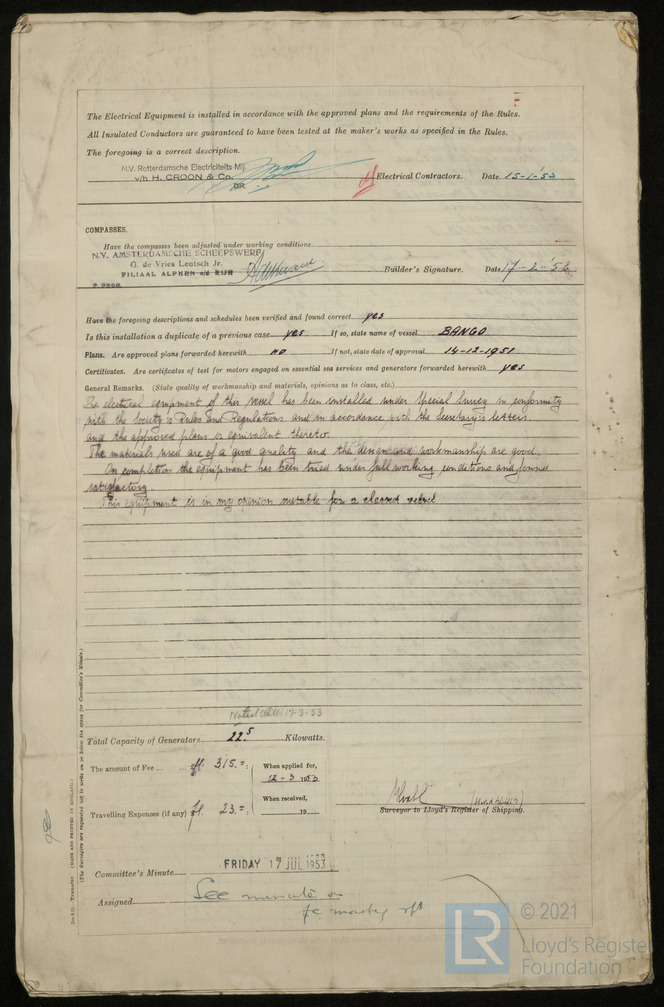 The Electrical Equipment is installed in accordance with the approved plans and the requirements of the Rules.
All Insulated Conductors are guaranteed to have been tested at the maker's works as specified in the Rules.
The foregoing is a correct description.
N.V. Rotterdamsche Electriciteits Mij.
v/h H. CROON & Co.
DR.
Electrical Contractors. Date 15-1-'53
COMPASSES.
Have the compasses been adjusted under working conditions
N.V. AMSTERDAMSCHE SCHEEPSWERF
G. de Vries Lentsch Jr.
FILIAAL ALPHEN a/d RIJN
Builder's Signature. Date 17-2-'53
Have the foregoing descriptions and schedules been verified and found correct yes
Is this installation a duplicate of a previous case yes If so, state name of vessel BANGO
Plans. Are approved plans forwarded herewith no If not, state date of approval 14-12-1951
Certificates. Are certificates of test for motors engaged on essential sea services and generators forwarded herewith yes
General Remarks. (State quality of workmanship and materials, opinions as to class, etc.)
The electrical equipment of this vessel has been installed under Special Survey in conformity
with the Society's Rules and Regulations and in accordance with the Secretary's letters
and the approved plans or equivalent thereto.
The materials used are of a good quality and the design and workmanship are good.
On completion the equipment has been tried under full working conditions and found
satisfactory.
This equipment is in my opinion suitable for a classed vessel
Noted 17-3-53
Total Capacity of Generators 22.5 Kilowatts.
The amount of Fee ... ... fl. 315.=:
When applied for,
12-3 1953
Travelling Expenses (if any) fl. 23.=:
When received,
19
Surveyor to Lloyd's Register of Shipping.
Committee's Minute FRIDAY 17 JUL 1953
Assigned See minute on
fe. mchy rpt
(The Surveyors are requested not to write on or below the space for Committee's Minute.)
(MADE AND PRINTED IN ENGLAND.)
LR © 2021
Lloyd's Register
Foundation